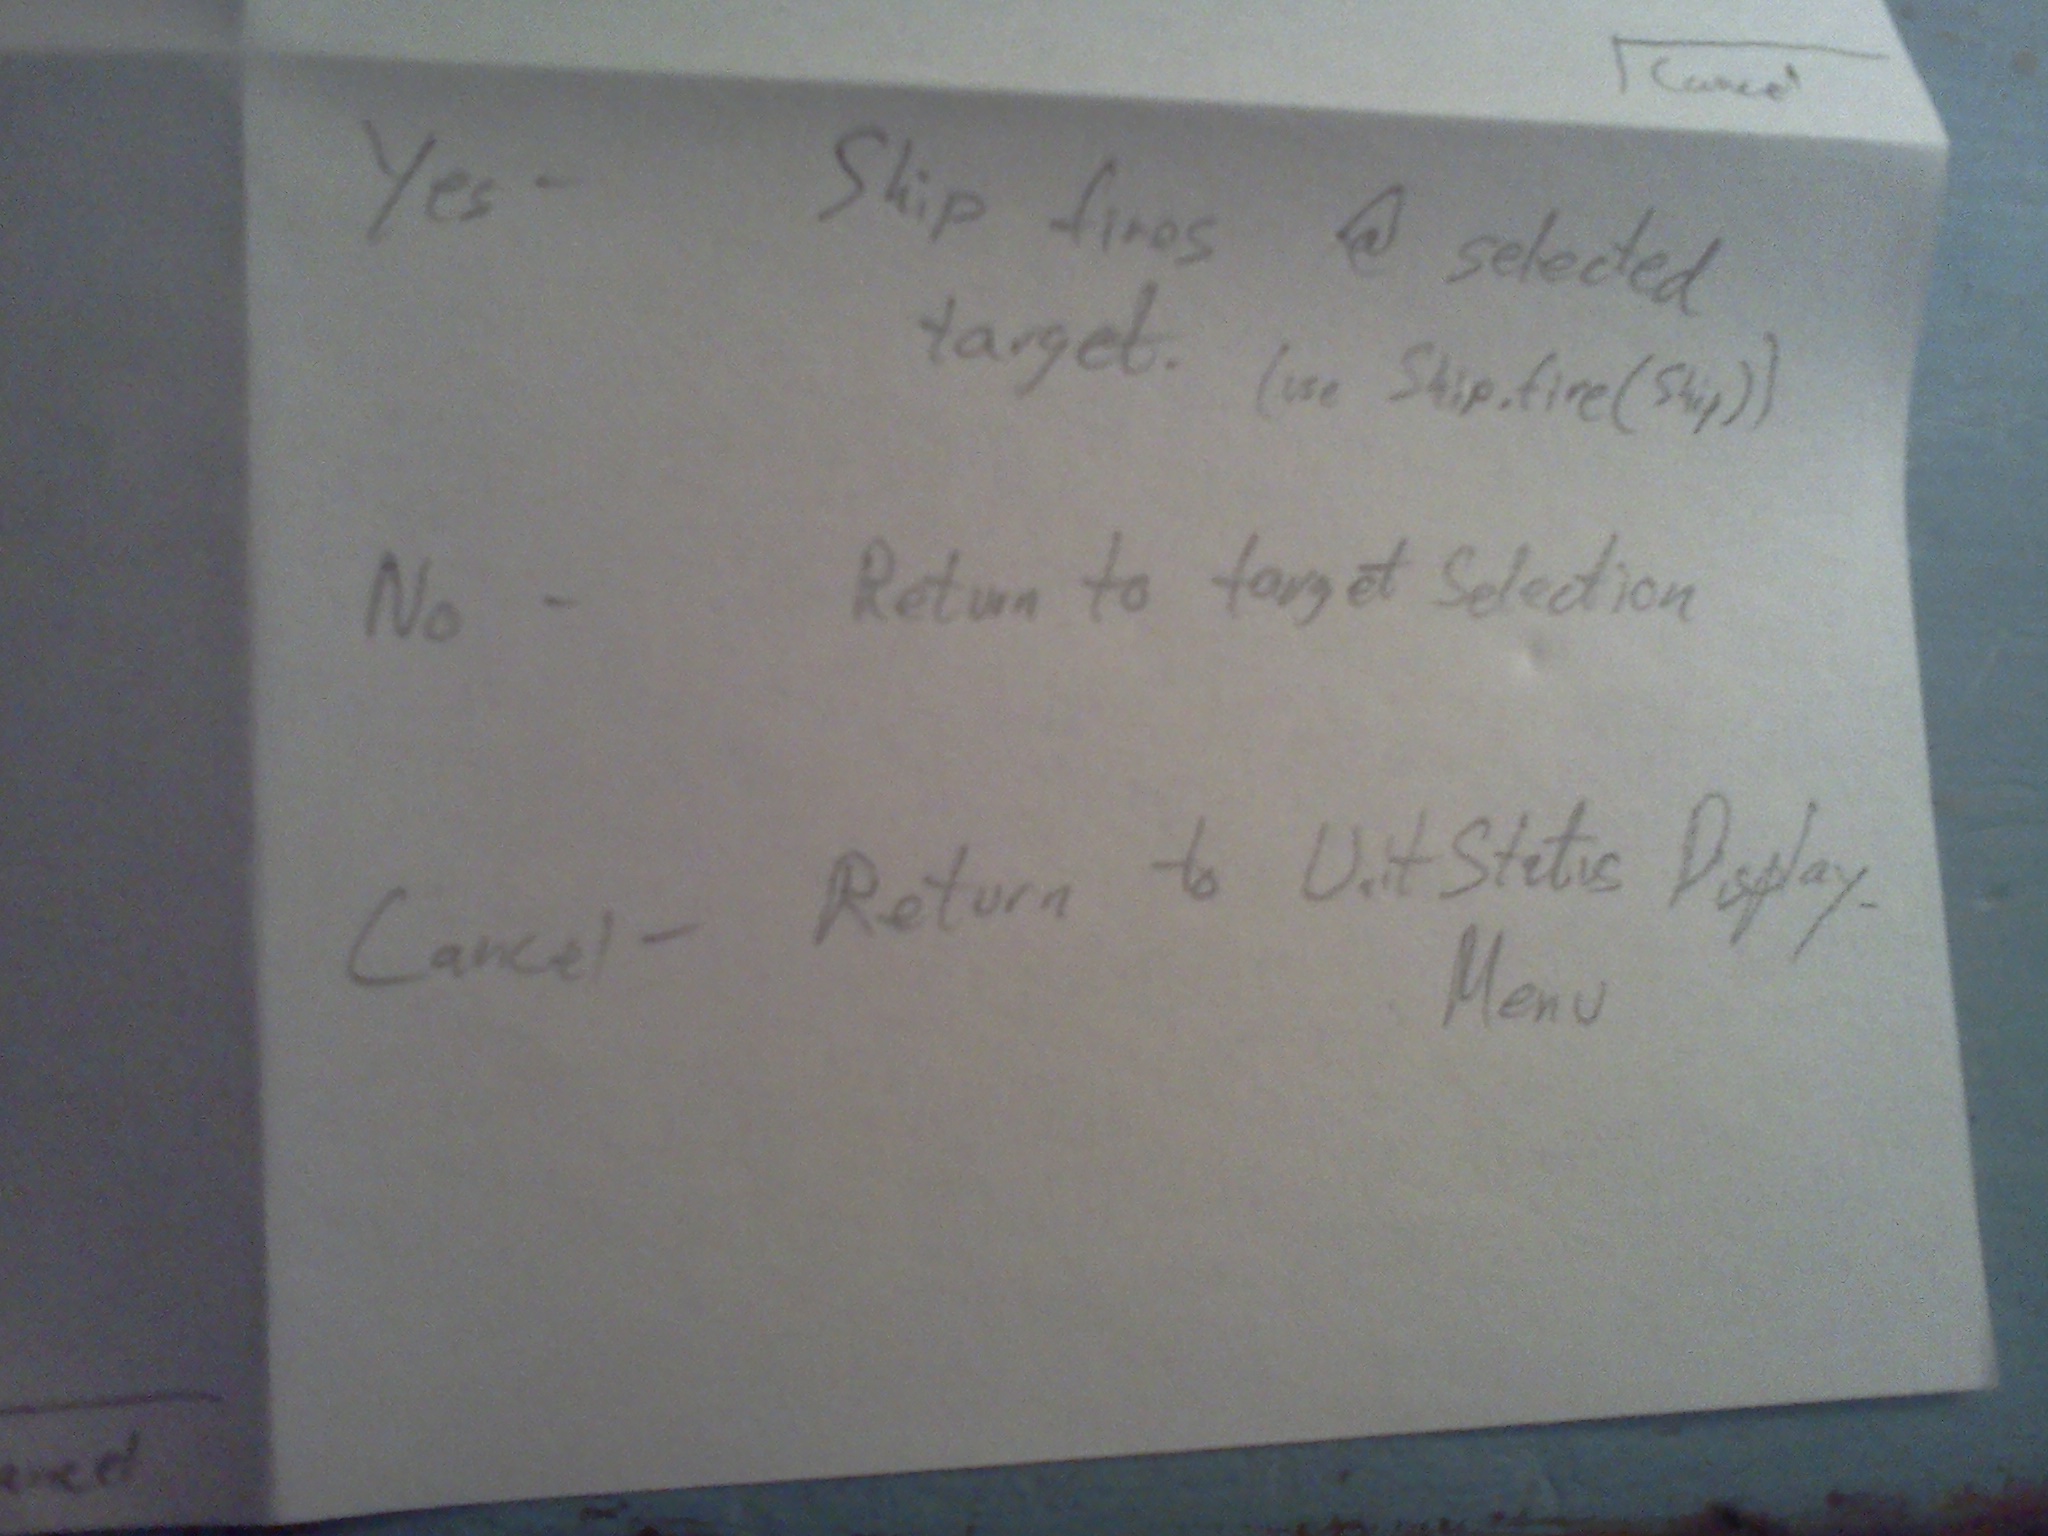 Cancel
Yes - Ship fires @ selected
target. (use Ship.fire(Ship))
No - Return to target Selection
Cancel - Return to Unit Status Display
Menu